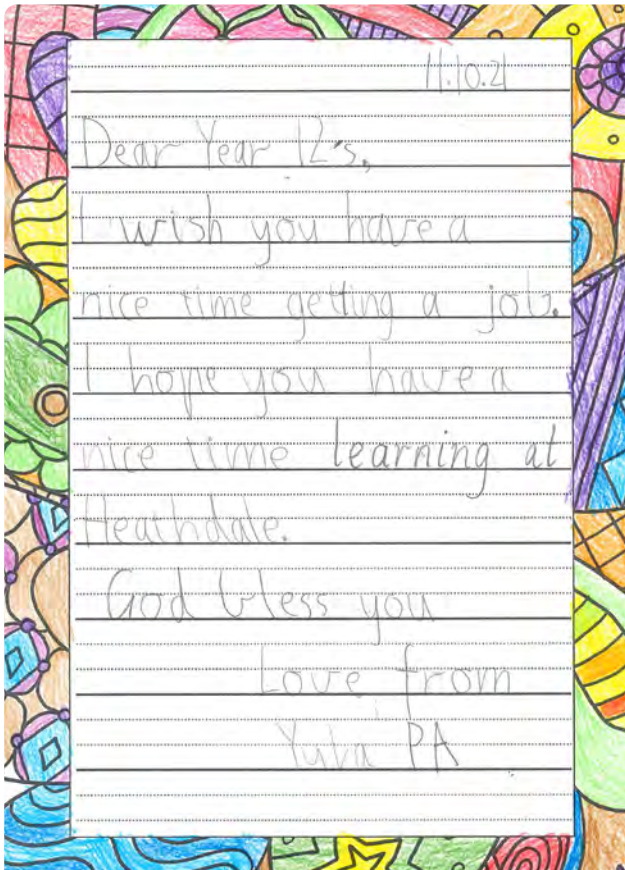 11.10.21
Dear Year 12's,
I wish you have a
nice time getting a job.
I hope you have a
nice time learning at
Heathdale.
God bless you
Love from
Yuva PA